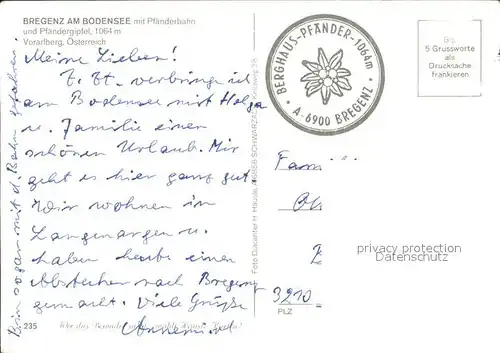 BREGENZ AM BODENSEE mit Pfänderbahn
und Pfändergipfel, 1064 m
Vorarlberg, Österreich
Meine Lieben!
Z. Zt. verbringe ich
am Bodensee mit Helga
u. Familie einen
schönen Urlaub. Mir
geht es hier ganz gut
Wir wohnen in
Langenargen u.
haben heute einen
Abstecher nach Bregenz
gemacht. Viele Grüße
Annemarie
Bin sogar mit d. Bahn gefahren.
235
Wer das Besondere
BERGHAUS-PFÄNDER-1064m
A-6900 BREGENZ
Bis
5 Grussworte
als
Drucksache
frankieren
Foto Dukaciter H. Häusle, A-6858 SCHWARZACH
Fam
privacy protection
Datenschutz
3210
PLZ